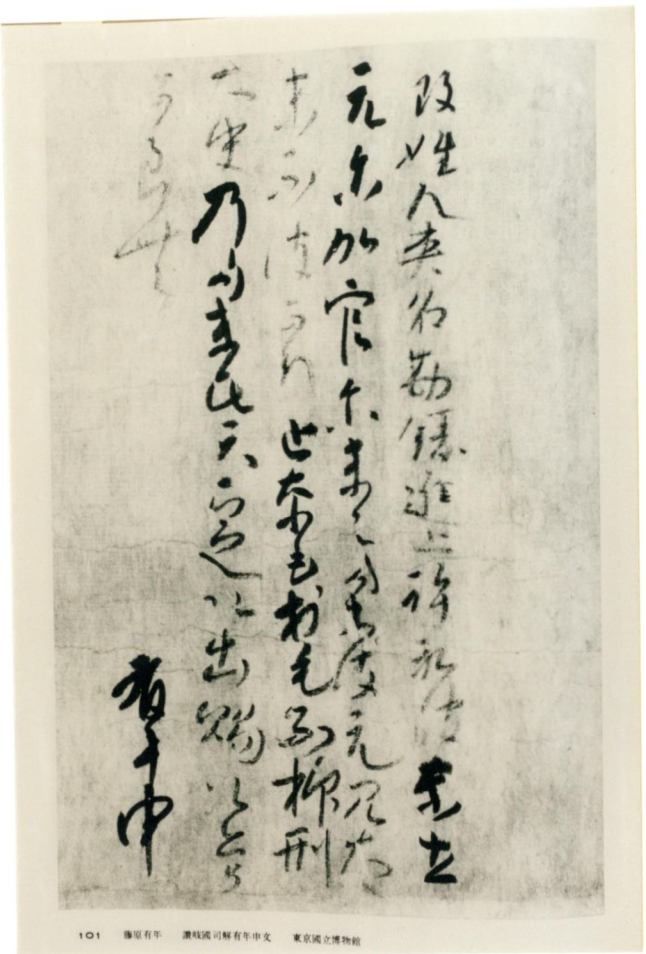 改姓人夾名勘録進上許礼波奈世
无尓加官尓末之多末波无見太
末不波可利止奈毛於毛不抑刑
大史乃多末比天定以出賜以止与
可良無
有年申
101 藤原有年 讚岐國司解有年申文 東京國立博物館